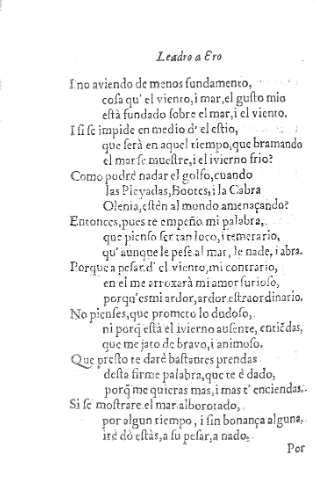 Leãdro a Ero
I no aviendo de menos fundamento,
cosa qu' el viento,i mar,el gusto mio
està fundado sobre el mar,i el viento.
I si se impide en medio d' el estio,
que serà en aquel tiempo,que bramando
el mar se muestre,i el ivierno frio?
Como podrè nadar el golfo,cuando
las Pleyadas,Bootes,i la Cabra
Olenia,estèn al mundo amenaçando?
Entonces,pues te empeño mi palabra,
que pienso ser tan loco,i temerario,
qu' aunque le pese al mar, le nade, i abra.
Porque a pesar d' el viento,mi contrario,
en el me arroxarà mi amor furioso,
porqu'es mi ardor,ardor estraordinario.
No pienses,que prometo lo dudoso,
ni porq̃ està el ivierno ausente, entiẽdas,
que me jato de bravo,i animoso.
Que presto te darè bastantes prendas
desta firme palabra,que te è dado,
porq̃ me quieras mas,i mas t' enciendas.
Si se mostrare el mar alborotado,
por algun tiempo, i sin bonança alguna,
irè dò estàs,a su pesar,a nado.
Por